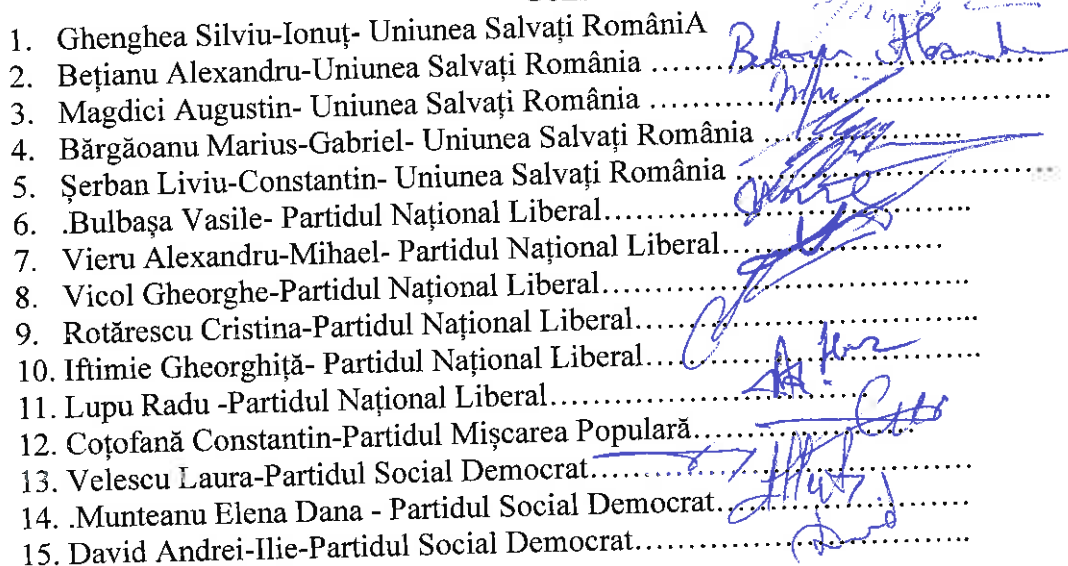 1. Ghenghea Silviu-Ionuț- Uniunea Salvați RomâniA
2. Bețianu Alexandru-Uniunea Salvați România ……………………………………..
3. Magdici Augustin- Uniunea Salvați România ……………………………………..
4. Bărgăoanu Marius-Gabriel- Uniunea Salvați România …………………
5. Șerban Liviu-Constantin- Uniunea Salvați România ……………………………
6. .Bulbașa Vasile- Partidul Național Liberal…………………………………..
7. Vieru Alexandru-Mihael- Partidul Național Liberal……………………
8. Vicol Gheorghe-Partidul Național Liberal…………………………………..
9. Rotărescu Cristina-Partidul Național Liberal………………………………...
10. Iftimie Gheorghiță- Partidul Național Liberal………………………………..
11. Lupu Radu -Partidul Național Liberal………………………………
12. Coțofană Constantin-Partidul Mișcarea Populară………………………
13. Velescu Laura-Partidul Social Democrat……………………………………
14. .Munteanu Elena Dana - Partidul Social Democrat………………………
15. David Andrei-Ilie-Partidul Social Democrat………………………………..